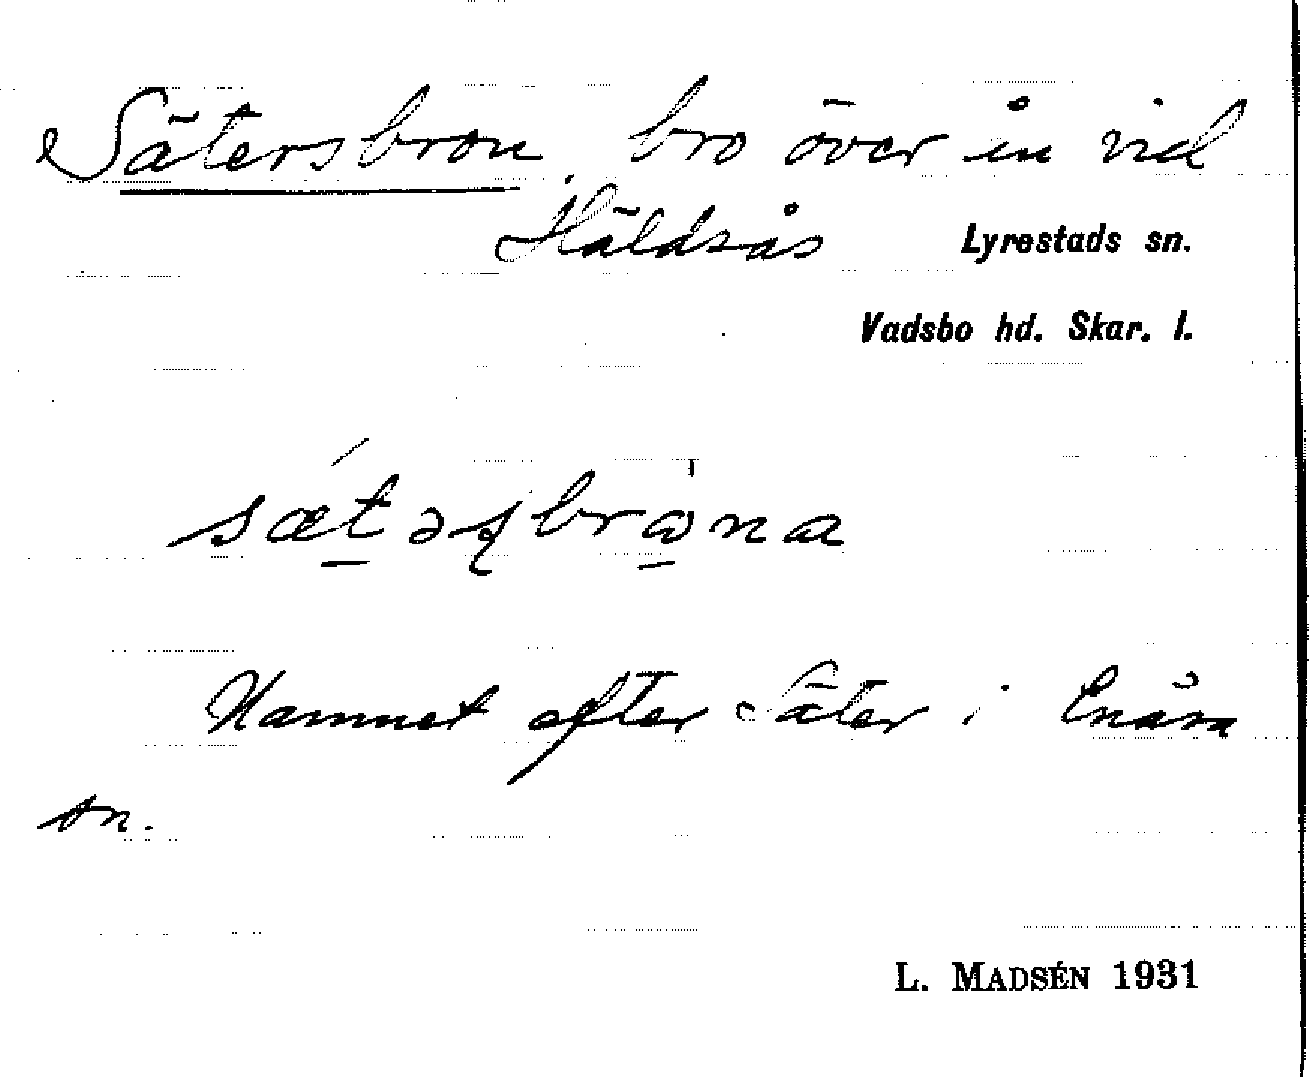 Sätersbron, bro över ån vid
Häldsås Lyrestads sn.
Vadsbo hd. Skar. l.
Namnet efter Säter i Enåsa
sn.
L. MADSÉN 1931